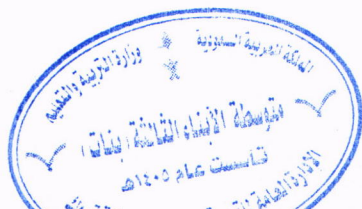 المملكة العربية السعودية
وزارة التربية والتعليم
متوسطة الأبناء الثالثة (بنات)
تأسست عام ١٤٠٥هـ
الإدارة العامة